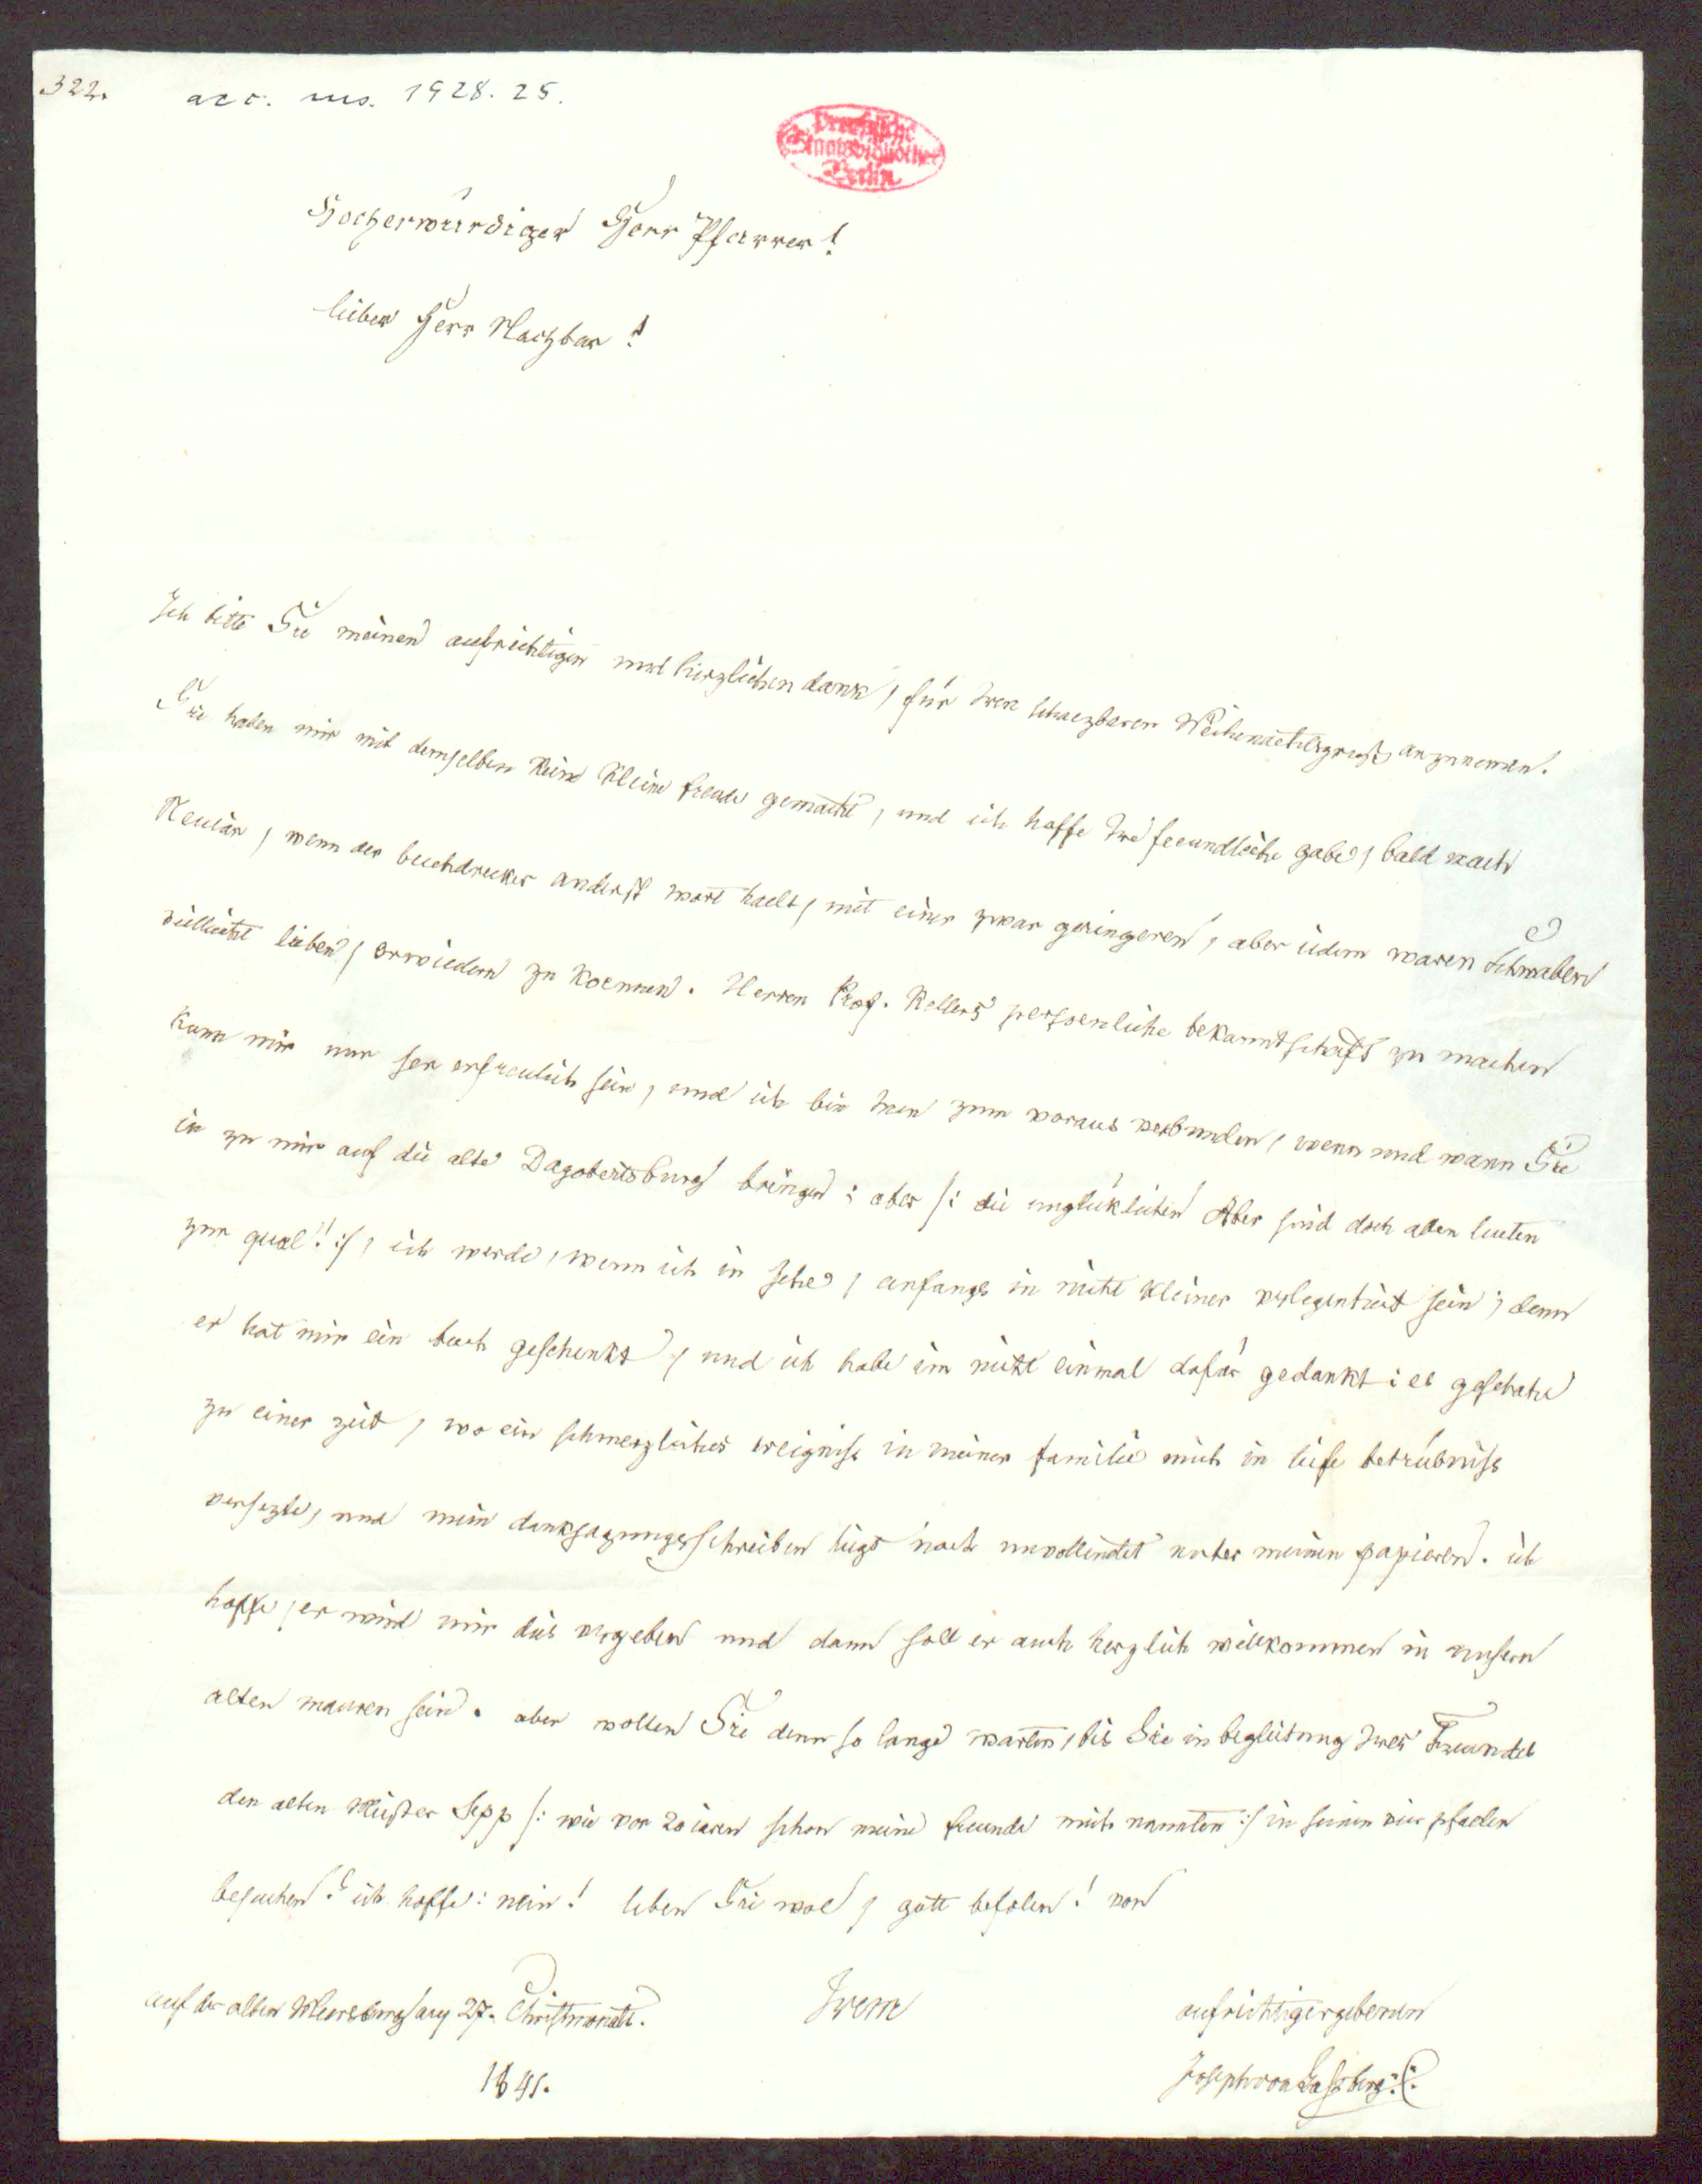 322.
acc. ms. 1928. 25.
Preußische
Staatsbibliothek
Berlin
Hocherwürdiger Herr Pfarrer!
lieber Herr Nachbar!
Ich bitte Sie meinen aufrichtigen und herzlichen dank, für Iren schaezbaren Weihenachtsgruß, anzunemen.
Sie haben mir mit demselben keine kleine freude gemacht, und ich hoffe Ire freundliche gabe, bald nach
Neuiar, wenn der buchdruker anderst wort haelt, mit einer zwar geringeren, aber iedem waren Schwaben
villeicht lieben, erwiedern zu koennen. Herren Prof. Kellers persoenliche bekanntschaft zu machen
kann mir nur ser erfreulich sein, und ich bin Inen zum voraus verbunden, wenn und wann Sie
in zu mir auf die alte Dagobertsburg bringen; aber /: die unglüklichen Aber sind doch allen leuten
zur qual! :/, ich werde, wenn ich in sehe, anfangs in nicht kleiner verlegenheit sein; denn
er hat mir ein buch geschenkt, und ich habe im nicht einmal dafür gedankt: es geschahe
zu einer zeit, wo ein schmerzliches ereigniss in meiner familie mich in tiefe betrübniss
versezte, und mein danksagungsschreiben ligt noch unvollendet unter meinen papieren. ich
hoffe, er wird mir dies vergeben und dann soll er auch herzlich willkommen in unsern
alten mauren sein. aber wollen Sie denn so lange warten, bis Sie in begleitung Ires Freundes
den alten Meister Sepp /: wie vor 20 iaren schon meine freunde mich nannten :/ in seinen vier pfaelen
besuchen? ich hoffe: nein! leben Sie wol, gott befolen! von
auf der alten Meersburg am 27. Christmonats.
1841.
Irem
aufrichtigergebenen
Joseph von Laßberg.